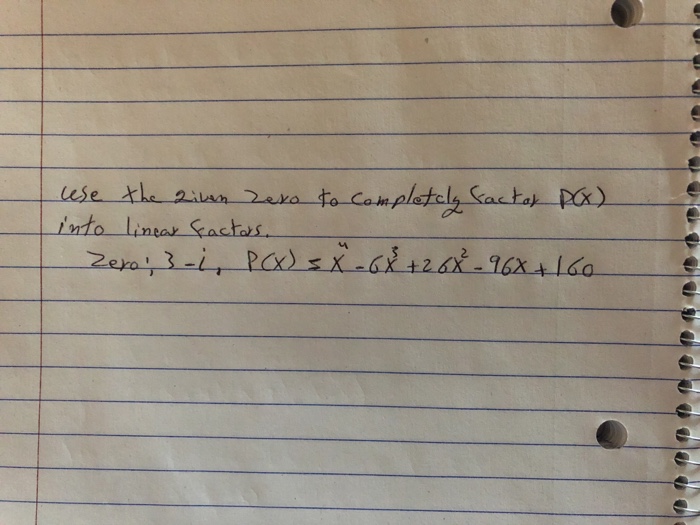 Use the given zero to completely factor P(x)
into linear factors.
Zero; 3-i, P(x) = x⁴-6x³+26x²-96x+160